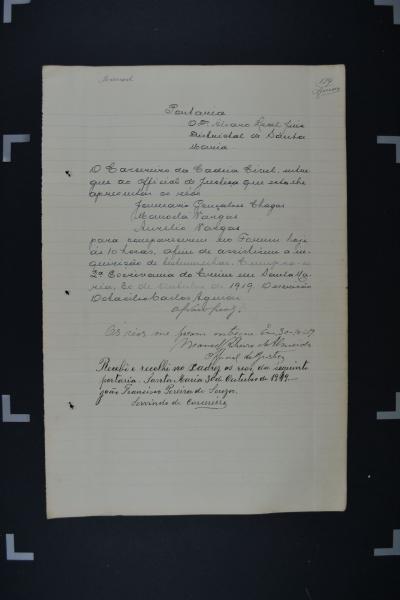 Portaria
O Dr. Alvaro Leal, Juiz
Districtal de Santa
Maria
O Carcereiro da Cadeia Civel, entre
gue ao official de Justiça que esta lhe
apresentar os réos
Januario Gonçalves Chagas
Manoela Vargas
Aurelio Vargas
para comparecerem no Forum hoje
as 10 horas, afim de assistirem a in
quirição de testemunhas. Cumpra-se
2º Escrivania do Crime em Santa Ma
ria, 30 de Outubro de 1919. O escrivão
Octacilio Carlos Aguiar
Os réos me foram entregue Em 30-10-19
Manoel
Official de Justiça
Recebi e recolhi no xadrez os reos da seguinte
portaria. Santa Maria 30 de Outubro de 1919.
João Francisco Pereira de Souza.
Servindo de Carcereiro